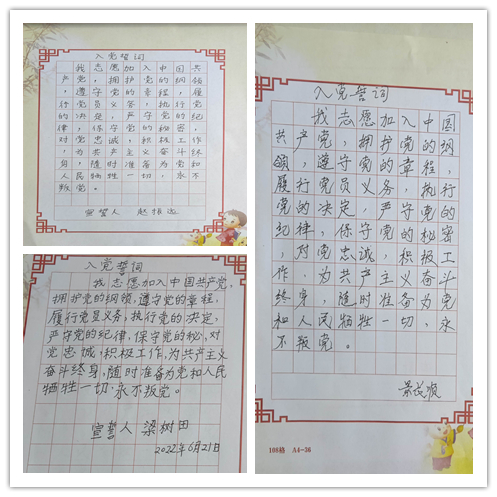 入党誓词
我志愿加入中国共
产党，拥护党的纲领
，遵守党的章程，履
行党员义务，执行党
的决定，严守党的纪
律，保守党的秘密，
对党忠诚，积极工作
，为共产主义奋斗终
身，随时准备为党和
人民牺牲一切，永不
叛党。
宣誓人 赵
入党誓词
我志愿加入中国共产党，
拥护党的纲领，遵守党的章程，
履行党员义务，执行党的决定，
严守党的纪律，保守党的秘，对
党忠诚，积极工作，为共产主义
奋斗终身，随时准备为党和人民
牺牲一切，永不叛党。
宣誓人 梁树田
2022年6月21日
入党誓词
我志愿加入中国
共产党，拥护党的纲
领，遵守党的章程，
履行党员义务，执行
党的决定，严守党的
纪律，保守党的秘密
，对党忠诚，积极工
作，为共产主义奋斗
终身，随时准备为党
和人民牺牲一切，永
不叛党。
景长波
188格 A4-36